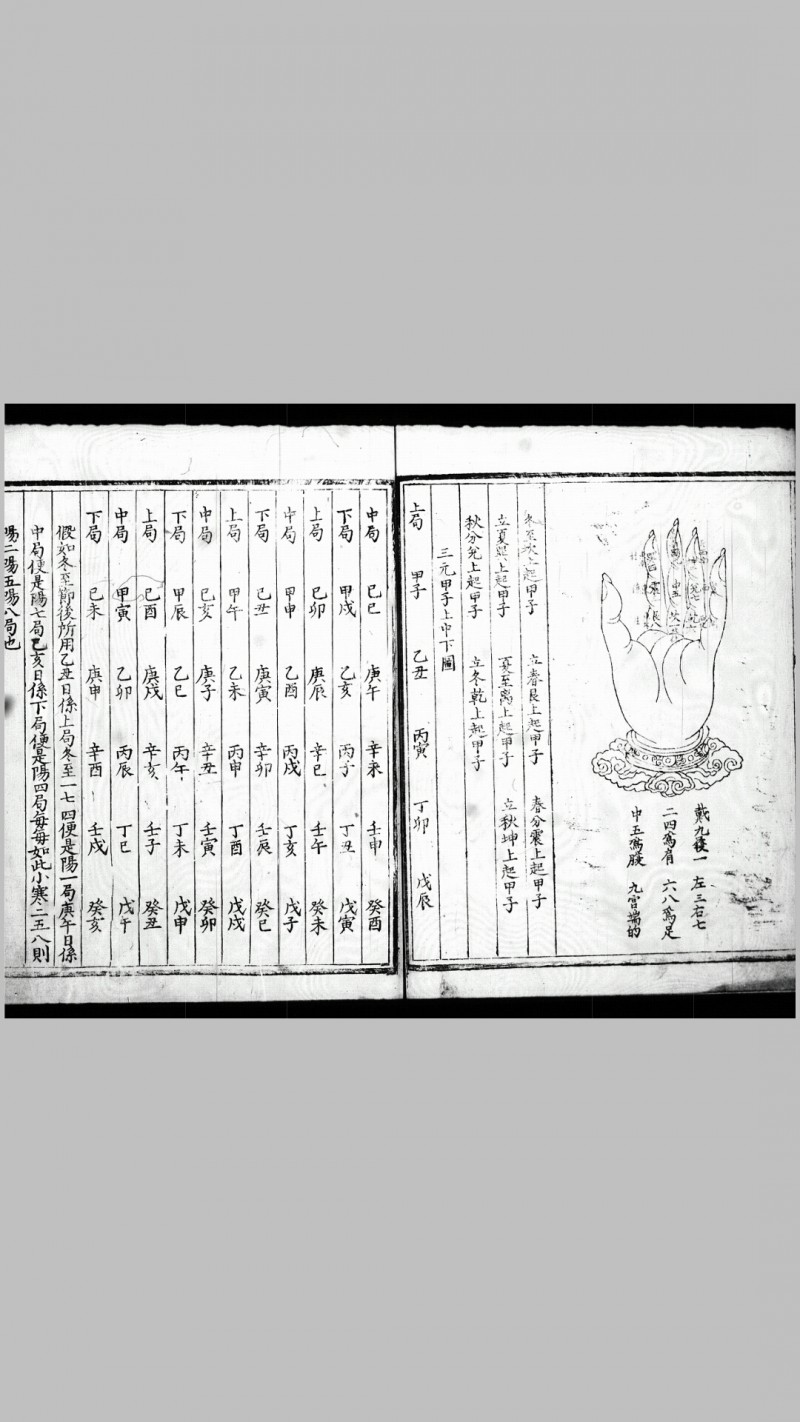 戴九履一　左三右七
二四為肩　六八為足
中五為腹　九宮端的
冬至坎上起甲子　立春艮上起甲子　春分震上起甲子
立夏巽上起甲子　夏至离上起甲子　立秋坤上起甲子
秋分兊上起甲子　立冬乾上起甲子
三元甲子上中下圖
上局　甲子　乙丑　丙寅　丁卯　戊辰
中局　己巳　庚午　辛未　壬申　癸酉
下局　甲戌　乙亥　丙子　丁丑　戊寅
上局　己卯　庚辰　辛巳　壬午　癸未
中局　甲申　乙酉　丙戌　丁亥　戊子
下局　己丑　庚寅　辛卯　壬辰　癸巳
上局　甲午　乙未　丙申　丁酉　戊戌
中局　己亥　庚子　辛丑　壬寅　癸卯
下局　甲辰　乙巳　丙午　丁未　戊申
上局　己酉　庚戌　辛亥　壬子　癸丑
中局　甲寅　乙卯　丙辰　丁巳　戊午
下局　己未　庚申　辛酉　壬戌　癸亥
假如冬至節後所用乙丑日係上局冬至一七四便是陽一局庚午日係
中局便是陽七局己亥日係下局便是陽四局每每如此小寒二五八則
陽二陽五陽八局也